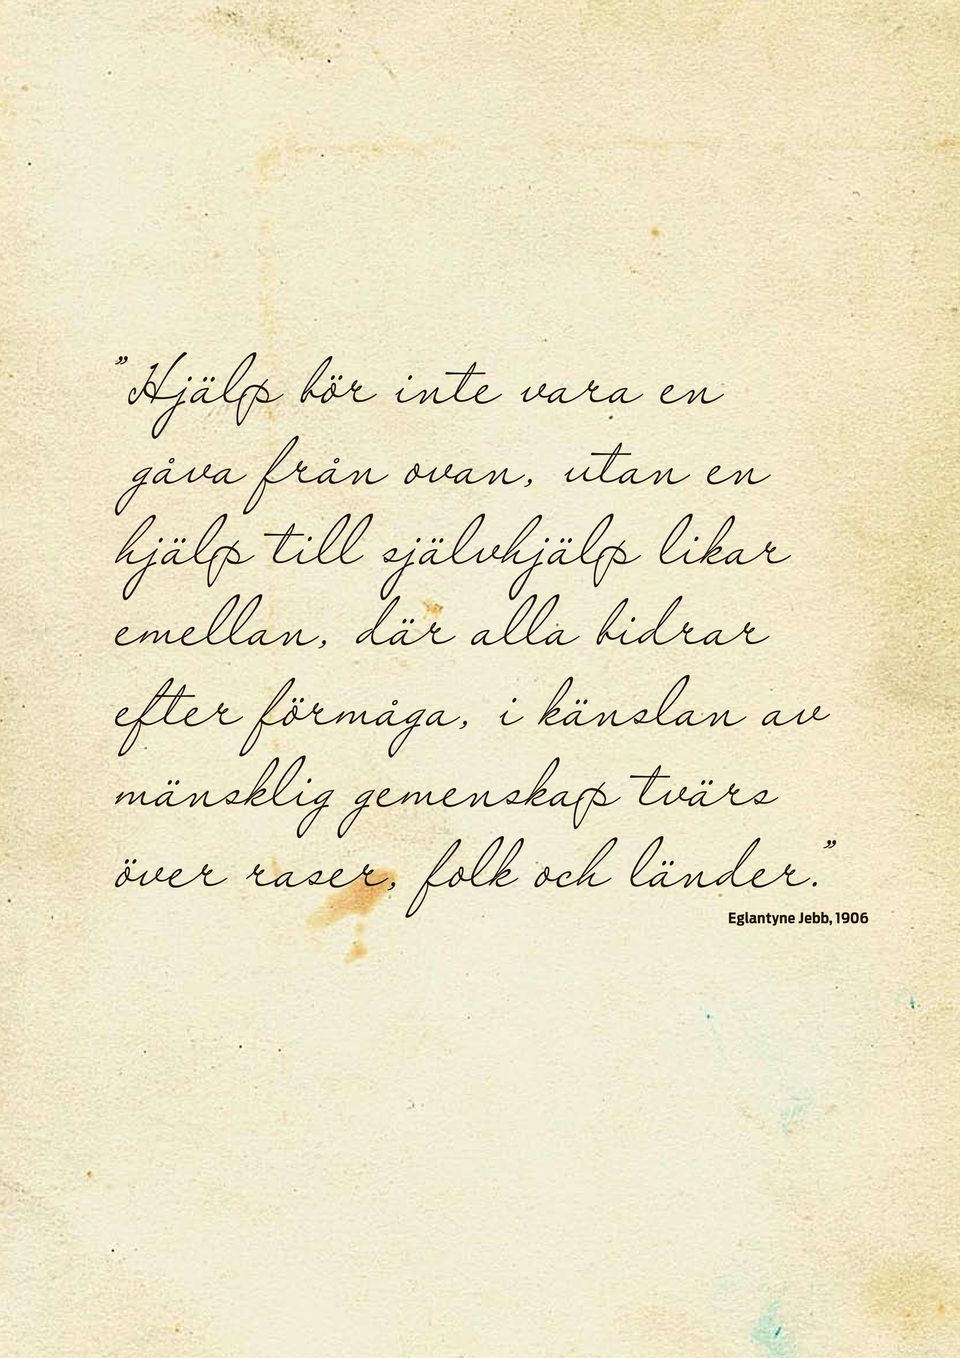 ”Hjälp bör inte vara en
gåva från ovan, utan en
hjälp till självhjälp likar
emellan, där alla bidrar
efter förmåga, i känslan av
mänsklig gemenskap tvärs
över raser, folk och länder.”
Eglantyne Jebb, 1906